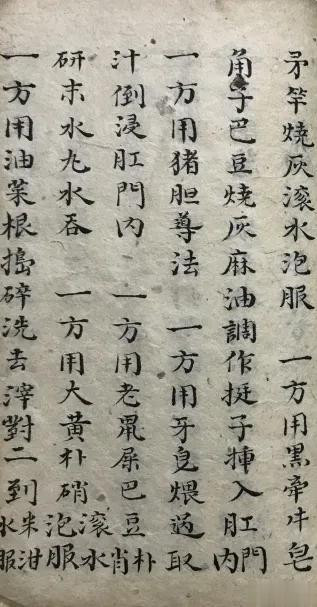 矛竿燒灰滾水泡服 一方用黑牽牛皂
角子巴豆燒灰麻油調作挺子揷入肛門內
一方用猪胆導法 一方用牙皂煨過取
汁倒浸肛門內 一方用老鼠屎巴豆朴肖
研末水丸水吞 一方用大黄朴硝滾水泡服
一方用油菜根搗碎洗去滓對二到米泔水服